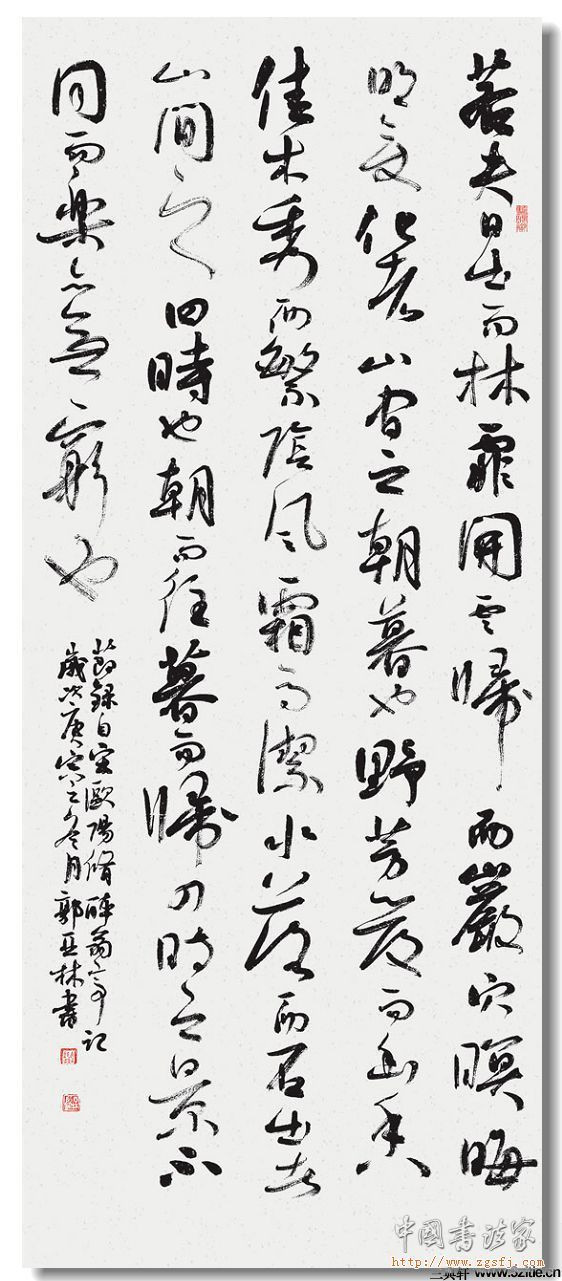 若夫日出而林霏開云歸而巖穴暝晦
明變化者山間之朝暮也野芳發而幽香
佳木秀而繁陰風霜高潔水落而石出者
山間之四時也朝而往暮而歸四時之景不
同而樂亦無窮也
節錄自宋歐陽脩醉翁亭記
歲次庚寅之冬月郭亞林書
中國書法家
http://www.zgsfj.com